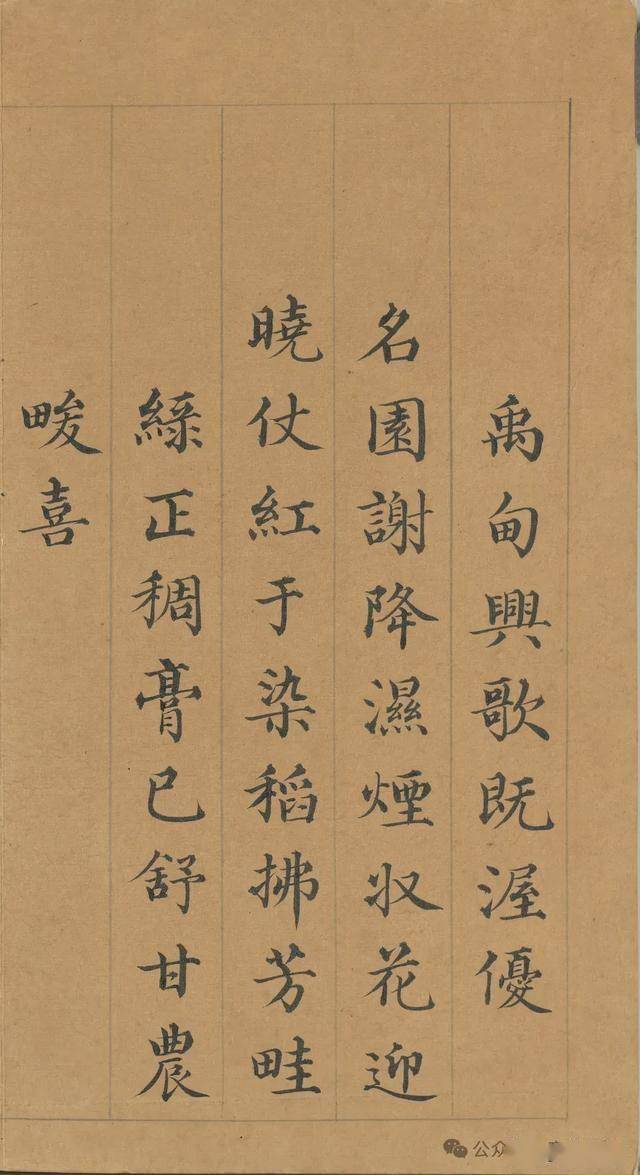 禹甸興歌既渥優
名園謝降濕煙收花迎
曉仗紅于染稻拂芳畦
綠正稠膏已舒甘農
畯喜
公众